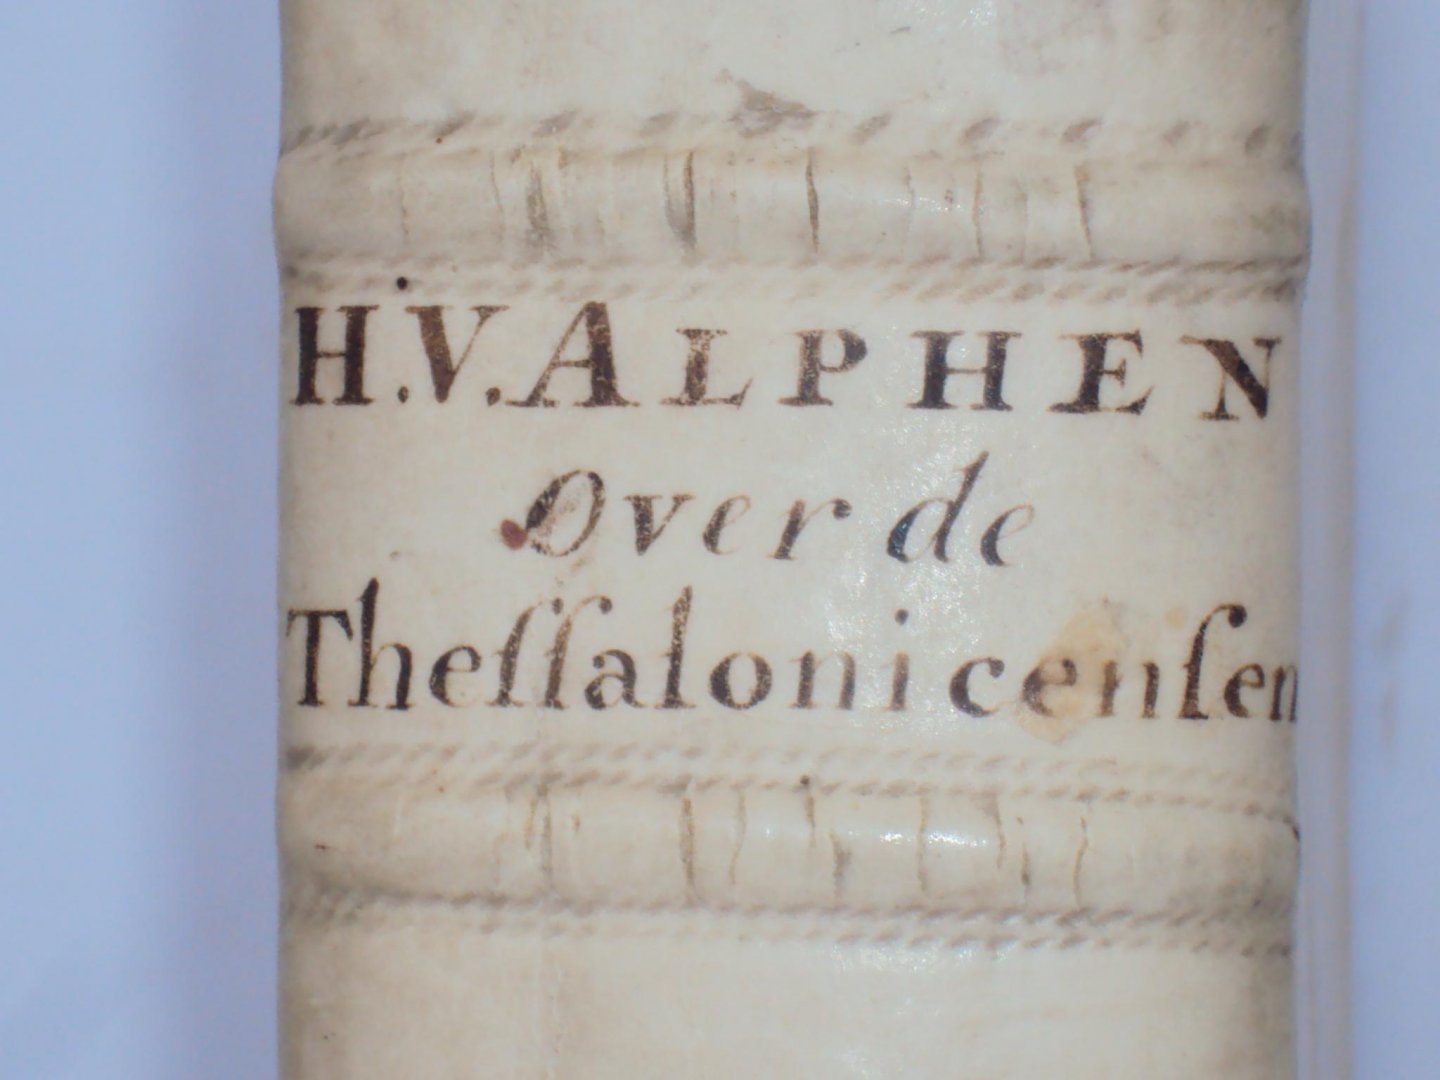 H.V. ALPHEN
Over de
Theſſalonicenſen